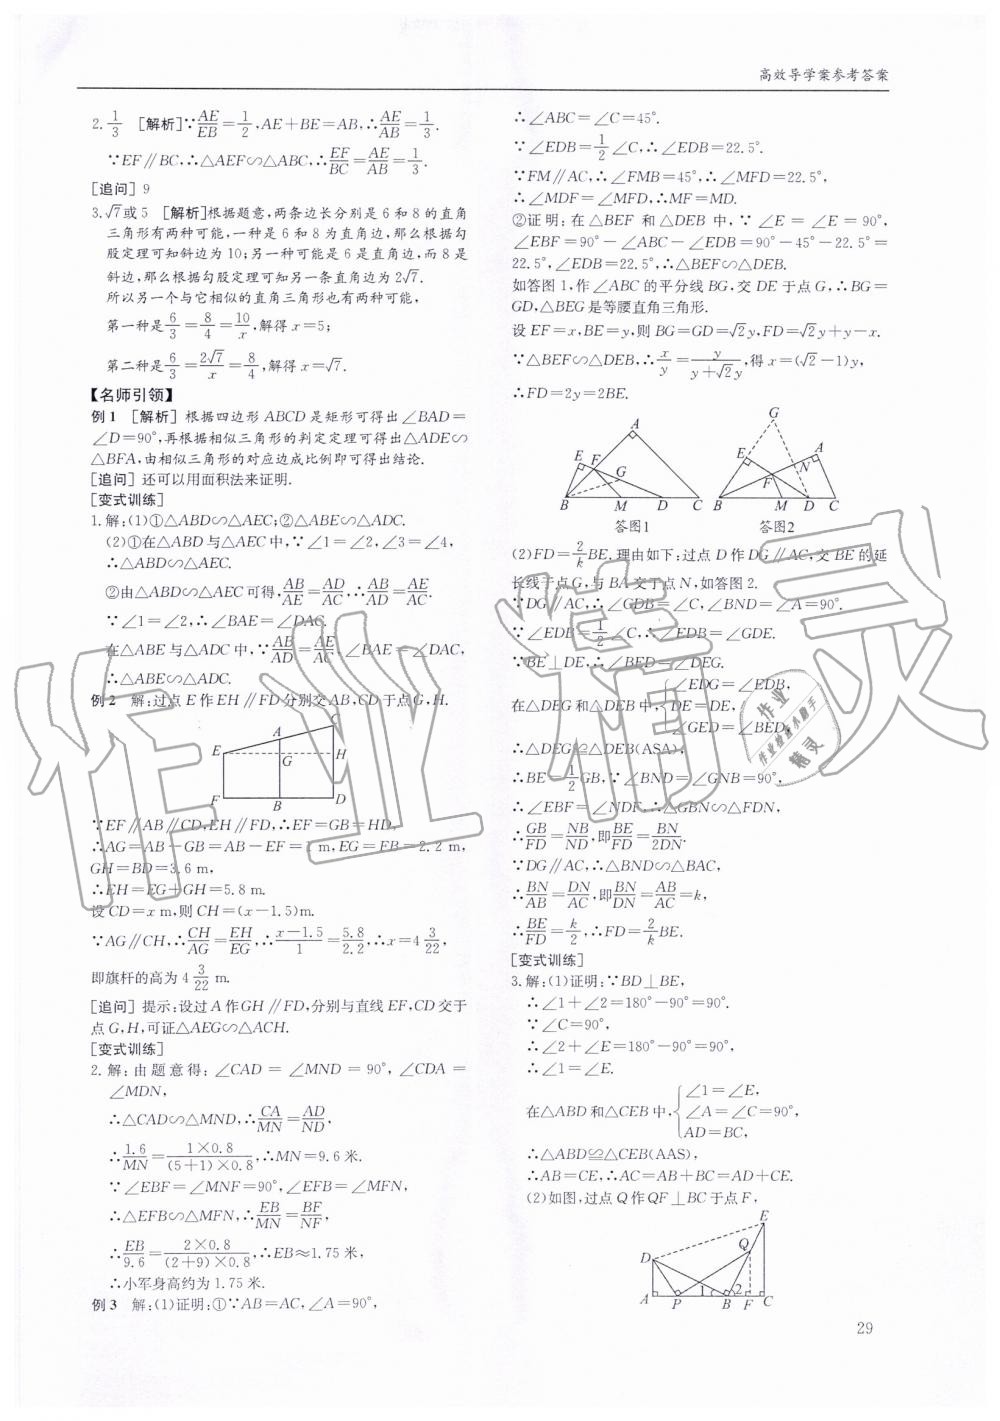 高效导学案参考答案
2. 1/3 [解析]∵AE/EB=1/2,AE+BE=AB,∴AE/AB=1/3.
∵EF∥BC,∴△AEF∽△ABC,∴EF/BC=AE/AB=1/3.
[追问] 9
3. √7或5 [解析]根据题意,两条边长分别是 6 和 8 的直角
三角形有两种可能,一种是 6 和 8 为直角边,那么根据勾
股定理可知斜边为 10;另一种可能是 6 是直角边,而 8 是
斜边,那么根据勾股定理可知另一条直角边为 2√7.
所以另一个与它相似的直角三角形也有两种可能,
第一种是6/3=8/4=10/x,解得 x=5;
第二种是6/3=2√7/x=8/4,解得 x=√7.
【名师引领】
例 1 [解析] 根据四边形 ABCD 是矩形可得出∠BAD=
∠D=90°,再根据相似三角形的判定定理可得出△ADE∽
△BFA,由相似三角形的对应边成比例即可得出结论.
[追问] 还可以用面积法来证明.
[变式训练]
1. 解:(1)①△ABD∽△AEC;②△ABE∽△ADC.
(2)①在△ABD与△AEC中,∵∠1=∠2,∠3=∠4,
∴△ABD∽△AEC.
②由△ABD∽△AEC可得,AB/AE=AD/AC,∴AB/AD=AE/AC.
∵∠1=∠2,∴∠BAE=∠DAC.
在△ABE与△ADC中,∵AB/AD=AE/AC,∠BAE=∠DAC,
∴△ABE∽△ADC.
例 2 解:过点E作EH∥FD分别交AB,CD于点G,H.
C
A
E
H
G
F
B
D
∵EF∥AB∥CD,EH∥FD,∴EF=GB=HD,
∴AG=AB-GB=AB-EF=1 m,EG=FB=2.2 m,
GH=BD=3.6 m,
∴EH=EG+GH=5.8 m.
设CD=x m,则CH=(x-1.5)m.
∵AG∥CH,∴CH/AG=EH/EG,∴(x-1.5)/1=5.8/2.2,∴x=4 3/22,
即旗杆的高为 4 3/22 m.
[追问] 提示:设过A作GH∥FD,分别与直线EF,CD交于
点G,H,可证△AEG∽△ACH.
[变式训练]
2. 解:由题意得:∠CAD=∠MND=90°,∠CDA=
∠MDN,
∴△CAD∽△MND,∴CA/MN=AD/ND,
∴1.6/MN=(1×0.8)/((5+1)×0.8),∴MN=9.6 米.
∵∠EBF=∠MNF=90°,∠EFB=∠MFN,
∴△EFB∽△MFN,∴EB/MN=BF/NF,
∴EB/9.6=(2×0.8)/((2+9)×0.8),∴EB≈1.75 米,
∴小军身高约为 1.75 米.
例 3 解:(1)证明:①∵AB=AC,∠A=90°,
∴∠ABC=∠C=45°.
∵∠EDB=1/2∠C,∴∠EDB=22.5°.
∵FM∥AC,∴∠FMB=45°,∴∠MFD=22.5°,
∴∠MDF=∠MFD,∴MF=MD.
②证明:在△BEF 和△DEB 中,∵∠E=∠E=90°,
∠EBF=90°-∠ABC-∠EDB=90°-45°-22.5°=
22.5°,∠EDB=22.5°,∴△BEF∽△DEB.
如答图 1,作∠ABC的平分线BG,交DE于点G,∴BG=
GD,△BEG是等腰直角三角形.
设EF=x,BE=y,则BG=GD=√2y,FD=√2y+y-x.
∵△BEF∽△DEB,∴x/y=y/(y+√2y),得x=(√2-1)y,
∴FD=2y=2BE.
A
E F
G
B M D C
答图1
G
E A
N
F
B M D C
答图2
(2)FD=2/k BE. 理由如下:过点D作DG∥AC,交BE的延
长线于点G,与BA交于点N,如答图 2.
∵DG∥AC,∴∠GDB=∠C,∠BND=∠A=90°.
∵∠EDB=1/2∠C,∴∠EDB=∠GDE.
∵BE⊥DE,∴∠BED=∠DEG.
在△DEG和△DEB中,{∠EDG=∠EDB,
DE=DE,
∠GED=∠BED,
∴△DEG≌△DEB(ASA),
∴BE=1/2GB,∵∠BND=∠GNB=90°,
∴∠EBF=∠NDF,∴△GBN∽△FDN,
∴GB/FD=NB/ND,即BE/FD=BN/2DN.
∵DG∥AC,∴△BND∽△BAC,
∴BN/AB=DN/AC,即BN/DN=AB/AC=k,
∴BE/FD=k/2,∴FD=2/k BE.
[变式训练]
3. 解:(1)证明:∵BD⊥BE,
∴∠1+∠2=180°-90°=90°.
∵∠C=90°,
∴∠2+∠E=180°-90°=90°,
∴∠1=∠E.
在△ABD和△CEB中,{∠1=∠E,
∠A=∠C=90°,
AD=BC,
∴△ABD≌△CEB(AAS),
∴AB=CE,∴AC=AB+BC=AD+CE.
(2)如图,过点Q作QF⊥BC于点F,
E
Q
D
1 2
A P B F C
29
作业精灵
作业
作业检查小助手
精灵